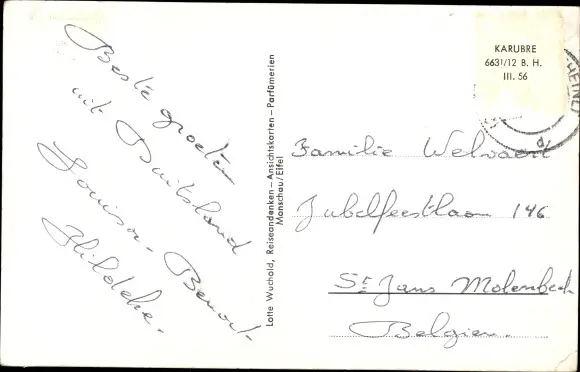 Beste groeten
uit Duitsland
Louisa - Benoit -
Hildeke -
Lotte Wuchold, Reiseandenken – Ansichtskarten – Parfümerien
Monschau/Eifel
KARUBRE
6631/12 B. H.
III. 56
Familie Welvaert
Jubelfeestlaan 146
St Jans Molenbeek
Belgien.